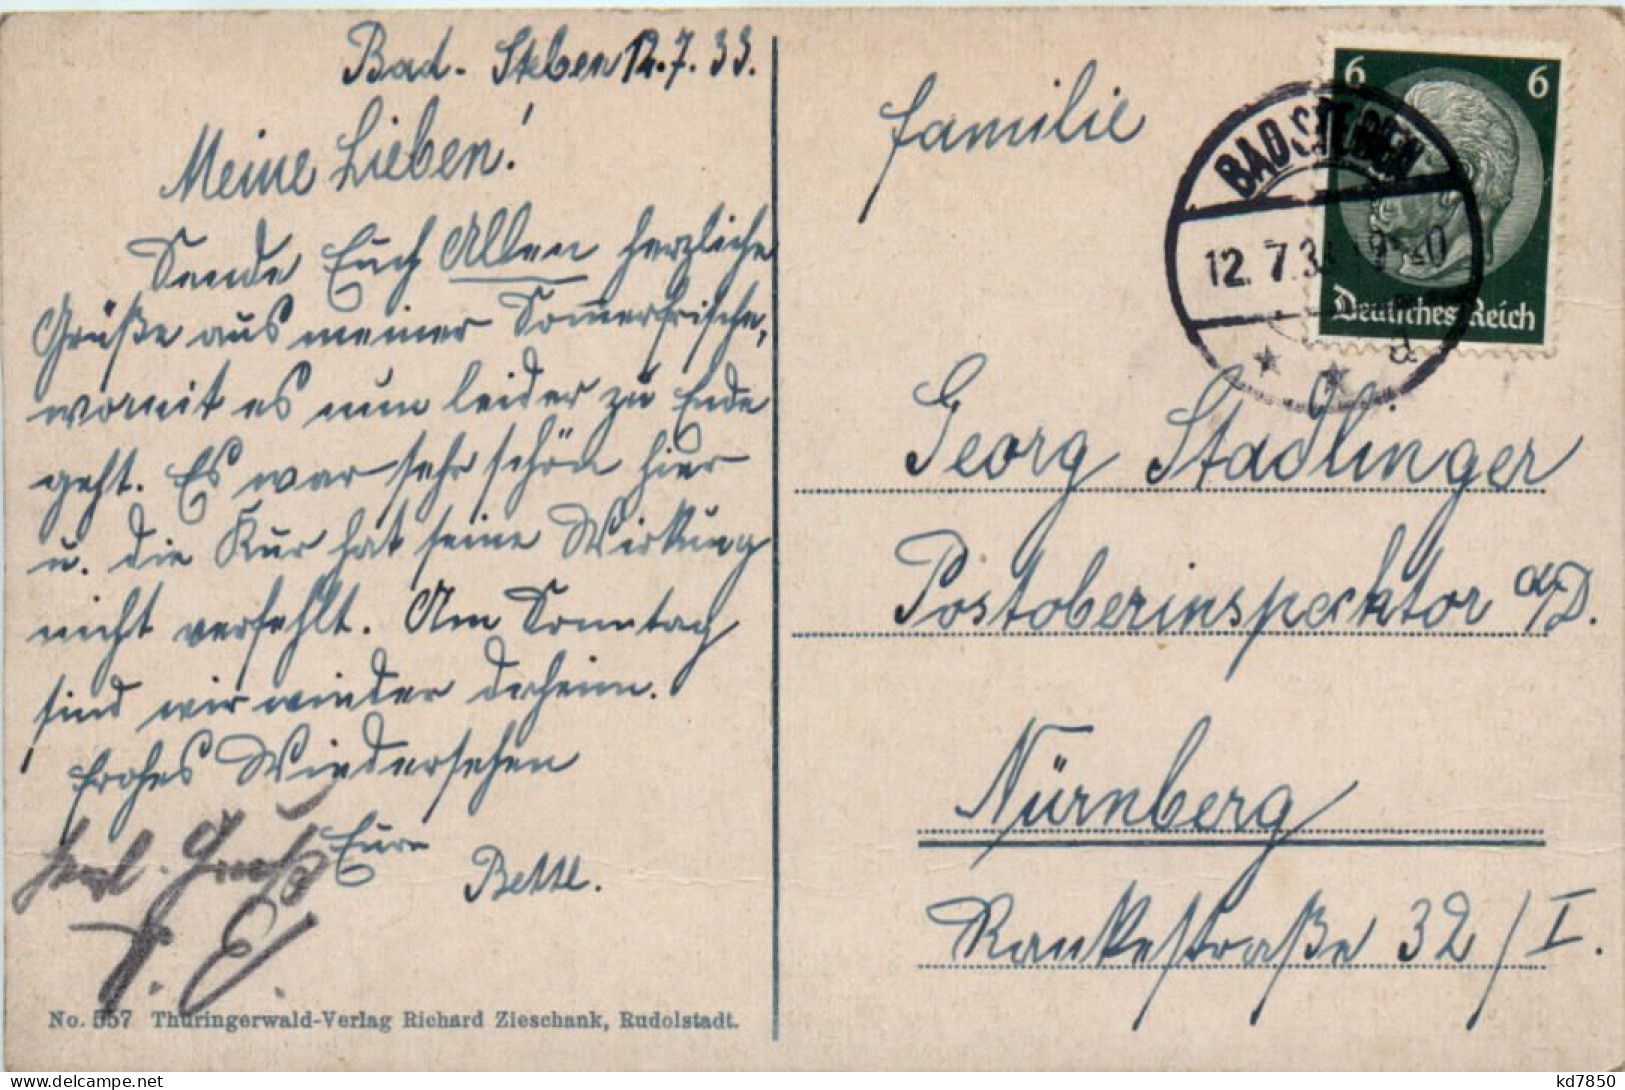 Bad-Steben 12.7.33.
Meine Lieben!
Sende Euch Allen herzliche
Grüße aus meiner Sommerfrische,
womit es nun leider zu Ende
geht. Es war sehr schön hier
u. die Kur hat seine Wirkung
nicht verfehlt. Am Sonntag
sind wir wieder daheim.
Frohes Wiedersehen
Eure
Bettl.
herzl. Gruß
No. 557 Thüringerwald-Verlag Richard Zieschank, Rudolstadt.
6 6
Deutsches Reich
BAD STEBEN
12. 7. 33
d
Familie
Georg Stadlinger
Postoberinspektor a/D.
Nürnberg
Rankestraße 32/I.
kd7850